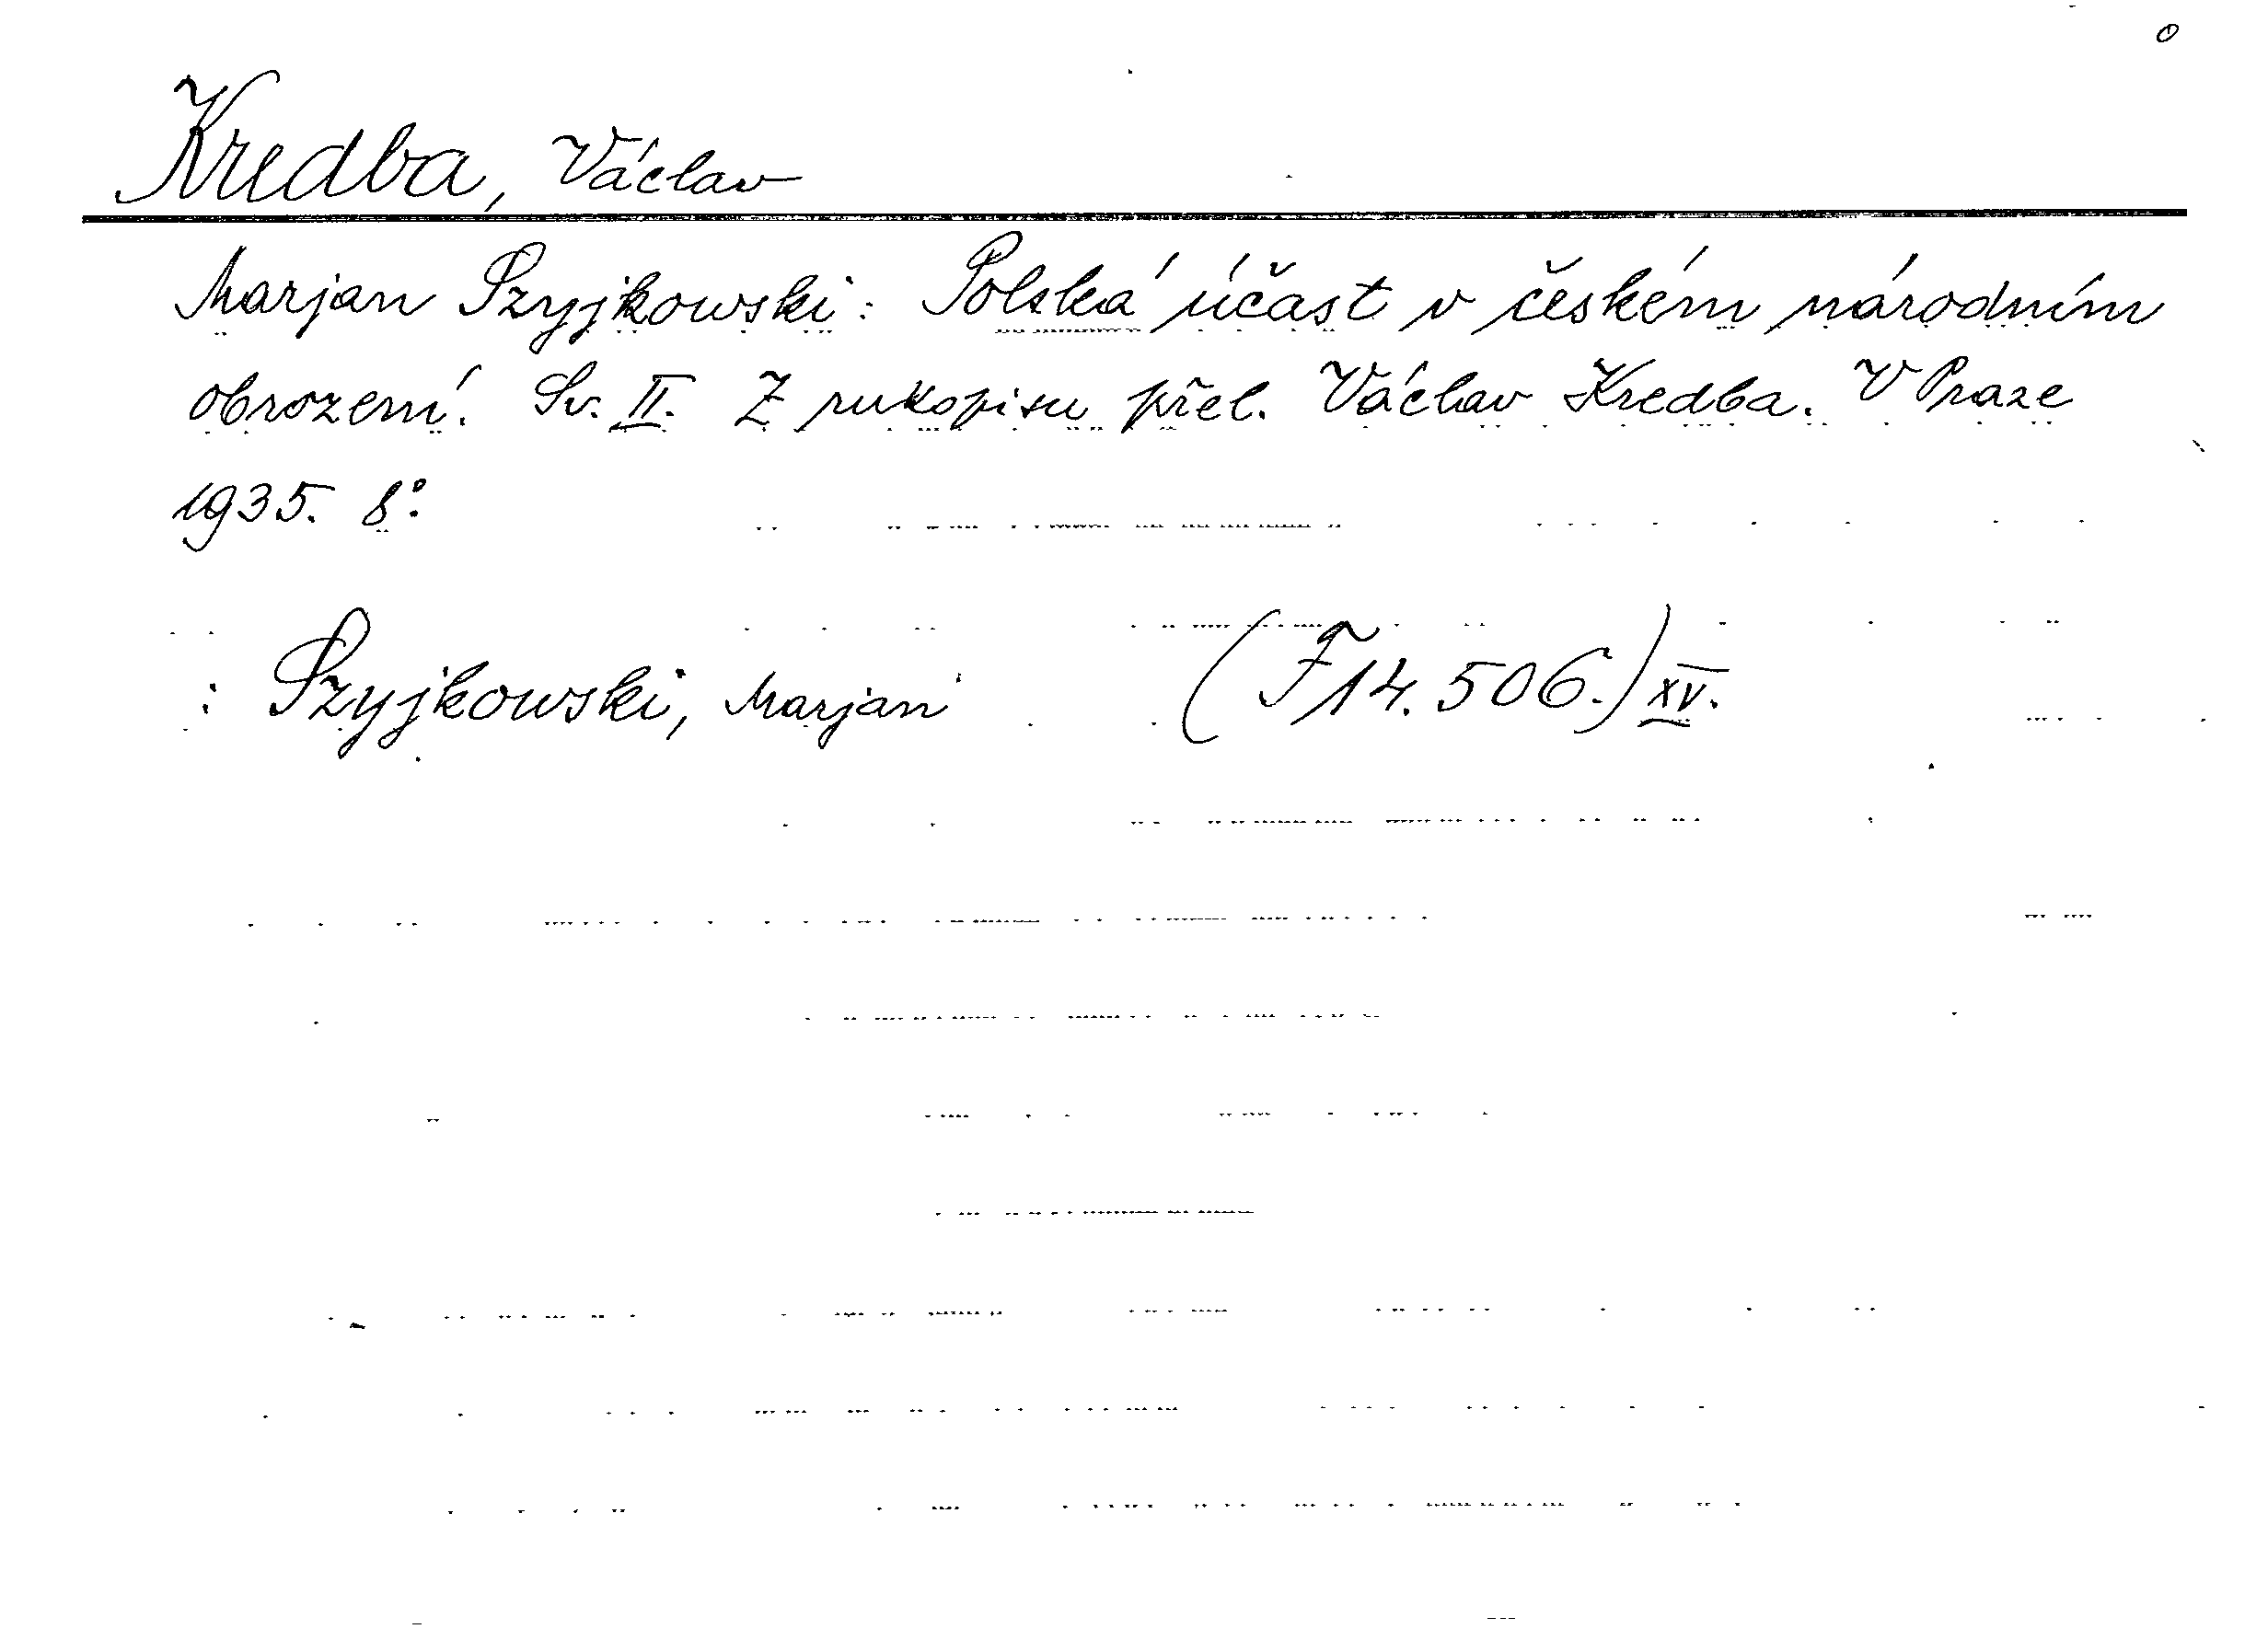 Kredba, Václav
Marjan Szyjkowski: Polská účast v českém národním
obrození. Sv. II. Z rukopisu přel. Václav Kredba. V Praze
1935. 8°.
: Szyjkowski, Marjan (F 14.506.) XV.